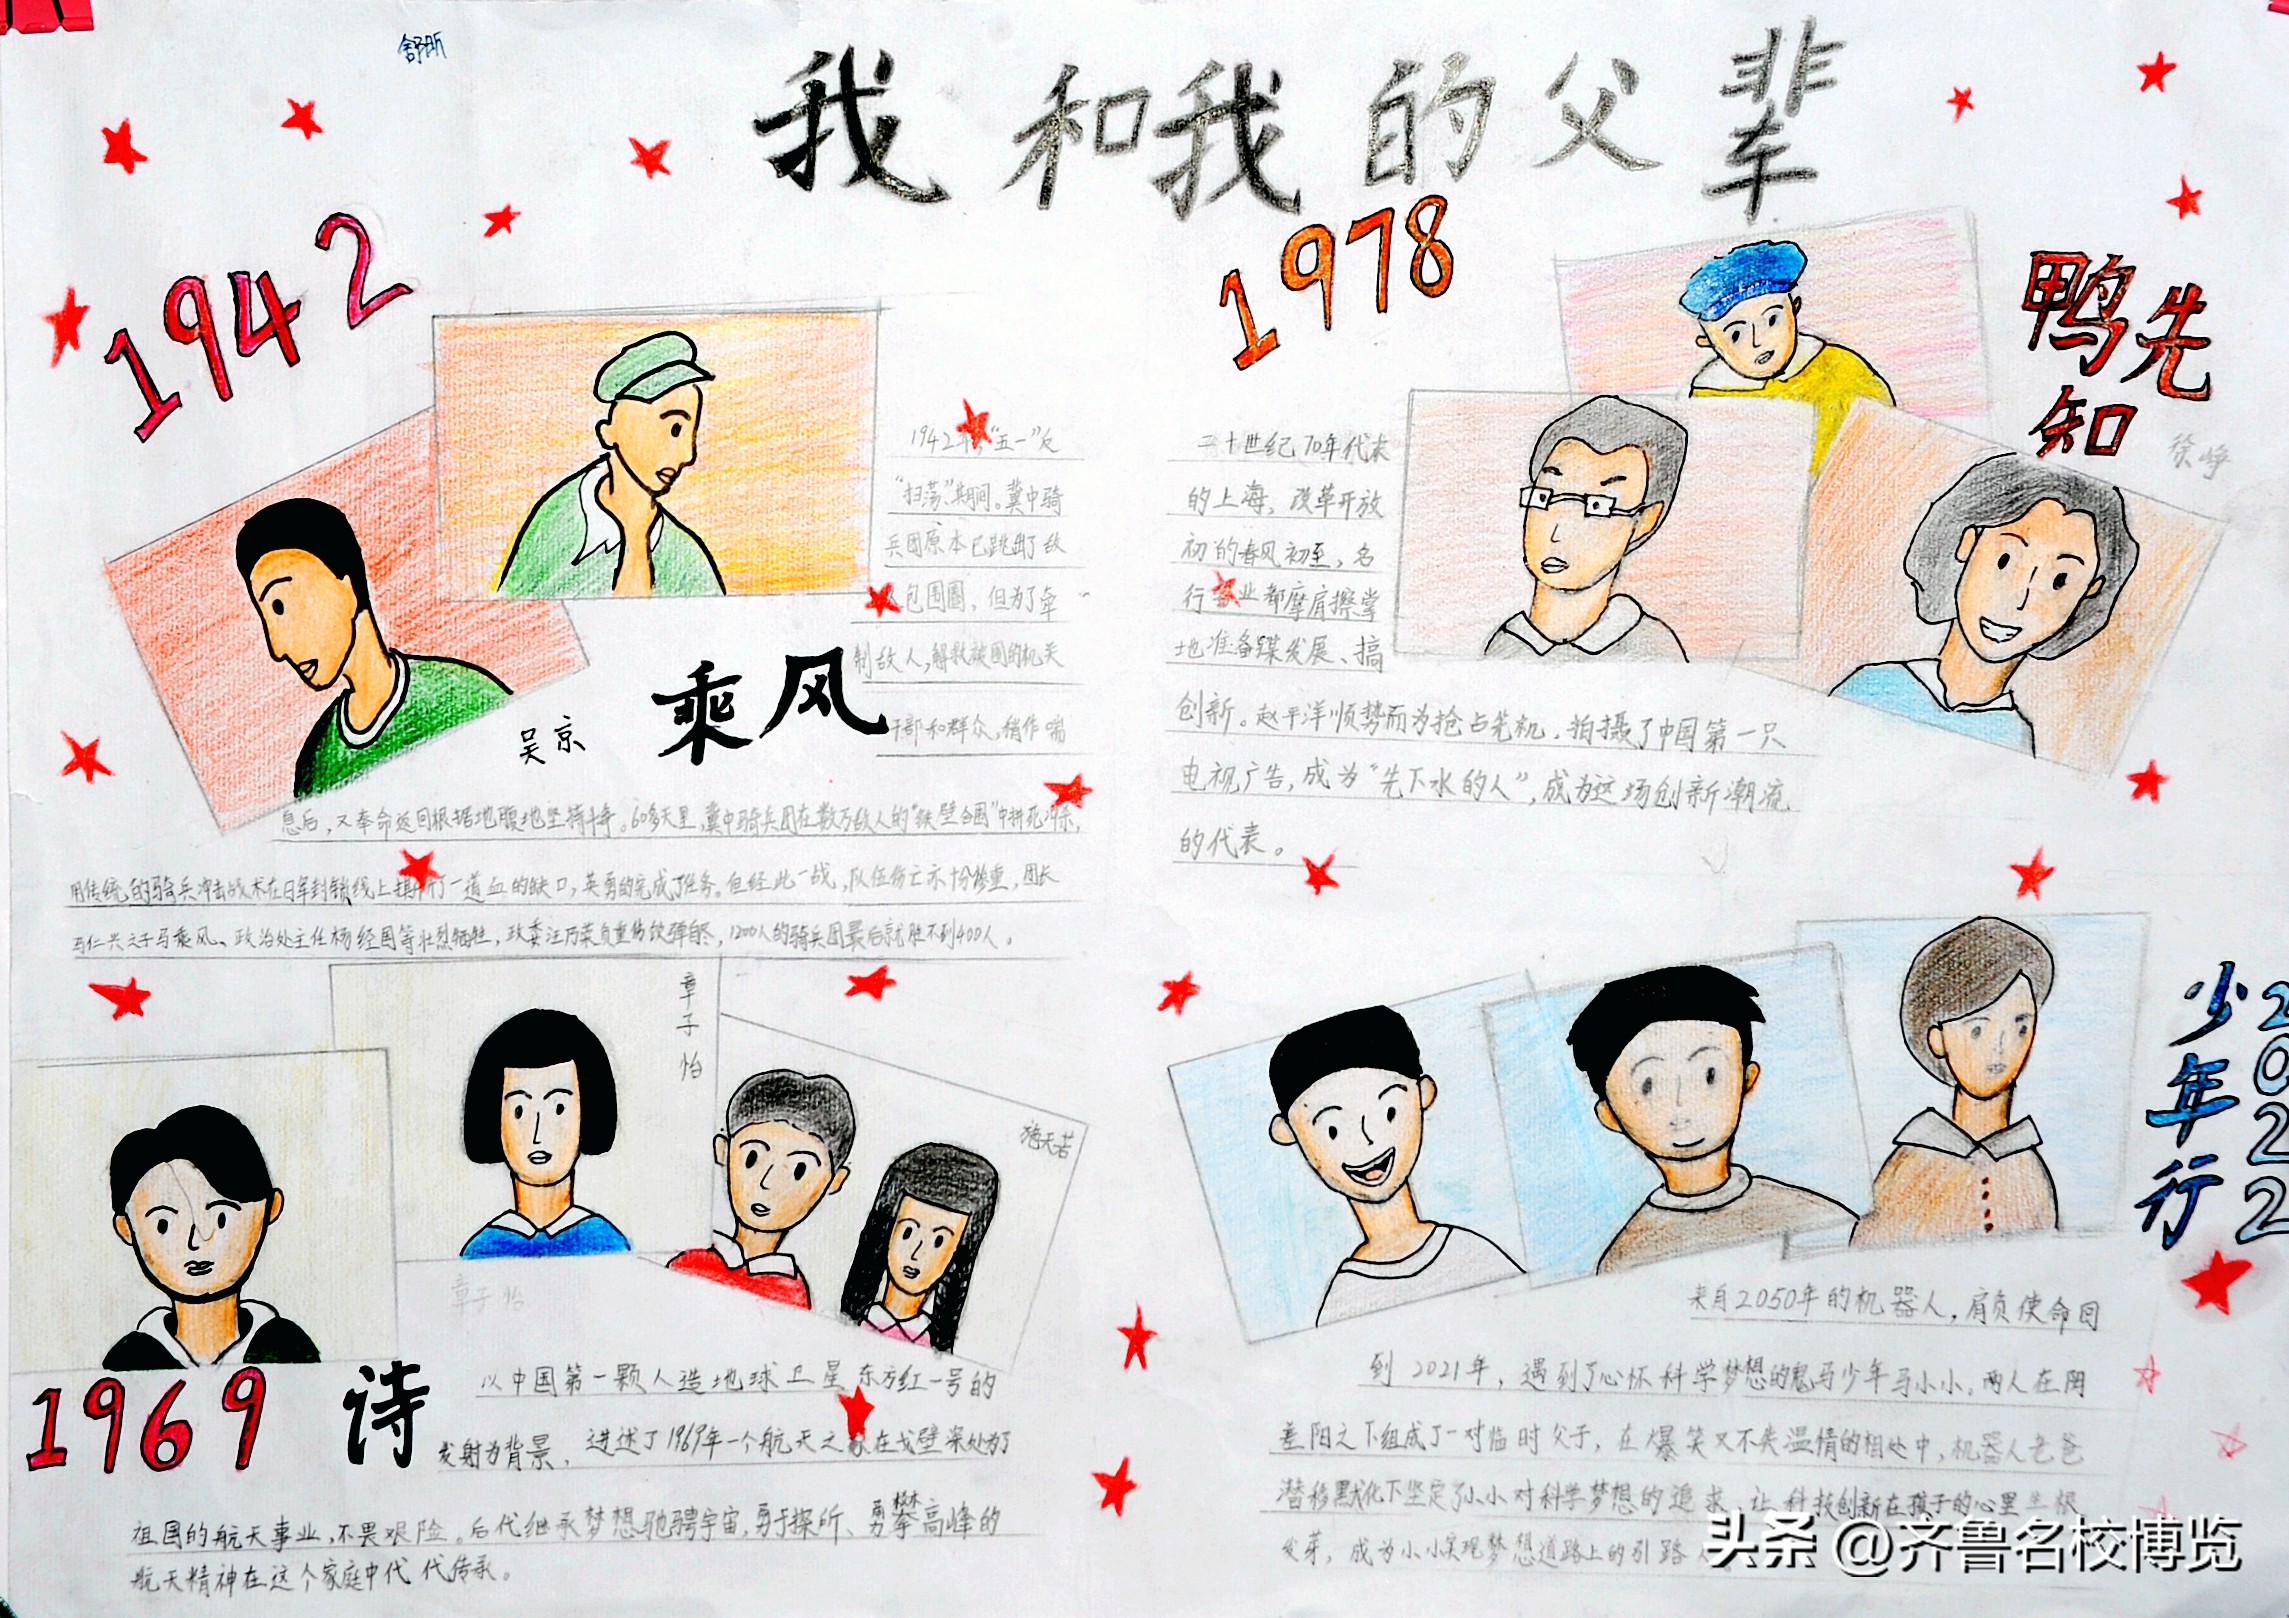 舒昕
我和我的父辈
1942
1942年,“五一”反
“扫荡”期间。冀中骑
兵团原本已跳出了敌
包围圈,但为了牵
制敌人,解救被围的机关
干部和群众,稍作喘
吴京
乘风
息后,又奉命返回根据地腹地坚持斗争。60多天里,冀中骑兵团在数万敌人的“铁壁合围”中拼死冲杀,
用传统的骑兵冲击战术在日军封锁线上撕开了一道血的缺口,英勇的完成了任务。但经此一战,队伍伤亡亦十分惨重,团长
马仁兴之子马乘风、政治处主任杨经国等壮烈牺牲,政委汪乃荣负重伤饮弹自尽,1200人的骑兵团最后就剩不到400人。
1978
鸭先知
徐峥
二十世纪70年代末
的上海,改革开放
初的春风初至,各
行各业都摩肩擦掌
地准备谋发展、搞
创新。赵平洋顺势而为抢占先机,拍摄了中国第一只
电视广告,成为“先下水的人”,成为这场创新潮流
的代表。
章子怡
章子怡
施天若
1969
诗
以中国第一颗人造地球卫星东方红一号的
发射为背景,讲述了1969年一个航天之家在戈壁深处为了
祖国的航天事业,不畏艰险。后代继承梦想驰骋宇宙,勇于探所、勇攀高峰的
航天精神在这个家庭中代代传承。
少年行
2022
来自2050年的机器人,肩负使命回
到2021年,遇到了心怀科学梦想的鬼马少年马小小,两人在阴
差阳之下组成了一对临时父子,在爆笑又不失温情的相处中,机器人老爸
潜移默化下坚定了小小对科学梦想的追求,让科技创新在孩子的心里生根
发芽,成为小小实现梦想道路上的引路
头条@齐鲁名校博览